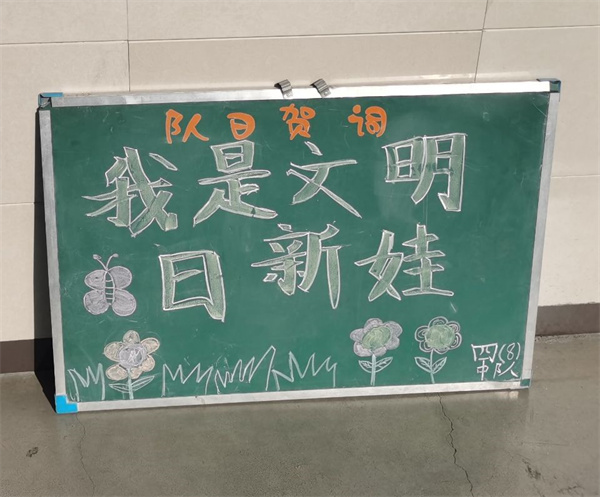 队日贺词
我是文明
日新娃
四(8)
中队